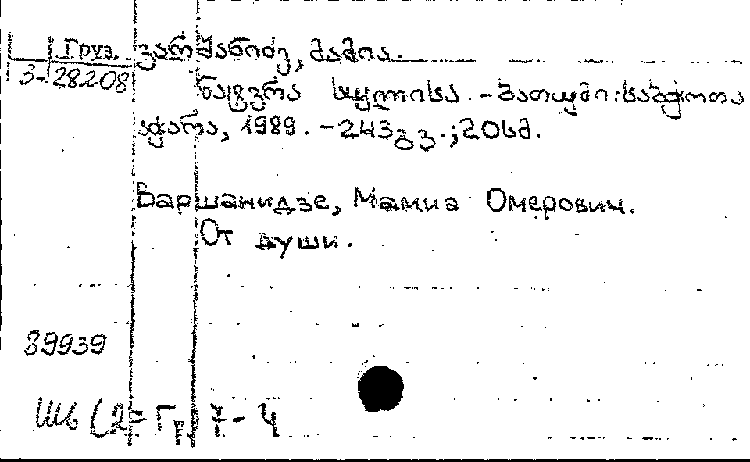 Груз. ვარშანიძე, მამია.
3-28208 ნატვრა სულისა. - ბათუმი: საბჭოთა
აჭარა, 1989. - 243 გვ.; 20 სმ.
Варшанидзе, Мамиа Омерович.
От души.
89939
Ш6 (2=Гр) 7-4